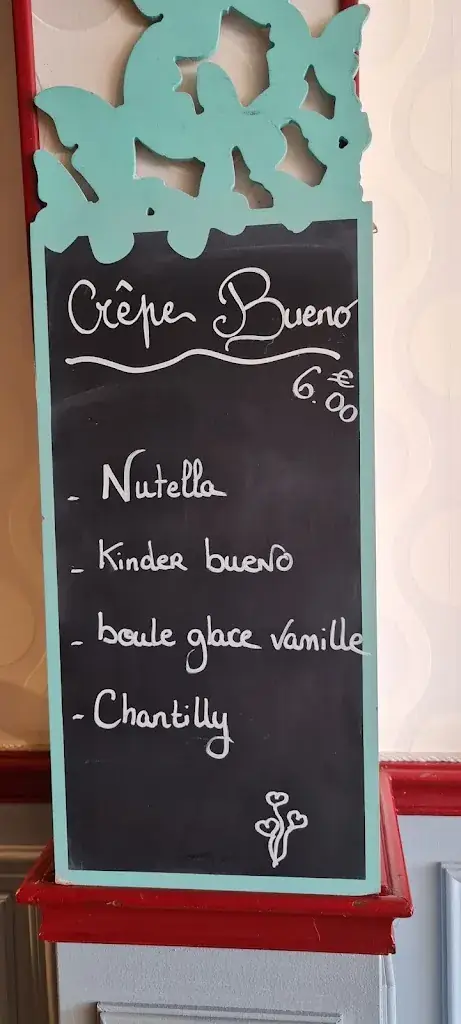 Crêpe Bueno
6.€00
- Nutella
- Kinder bueno
- boule glace vanille
- Chantilly